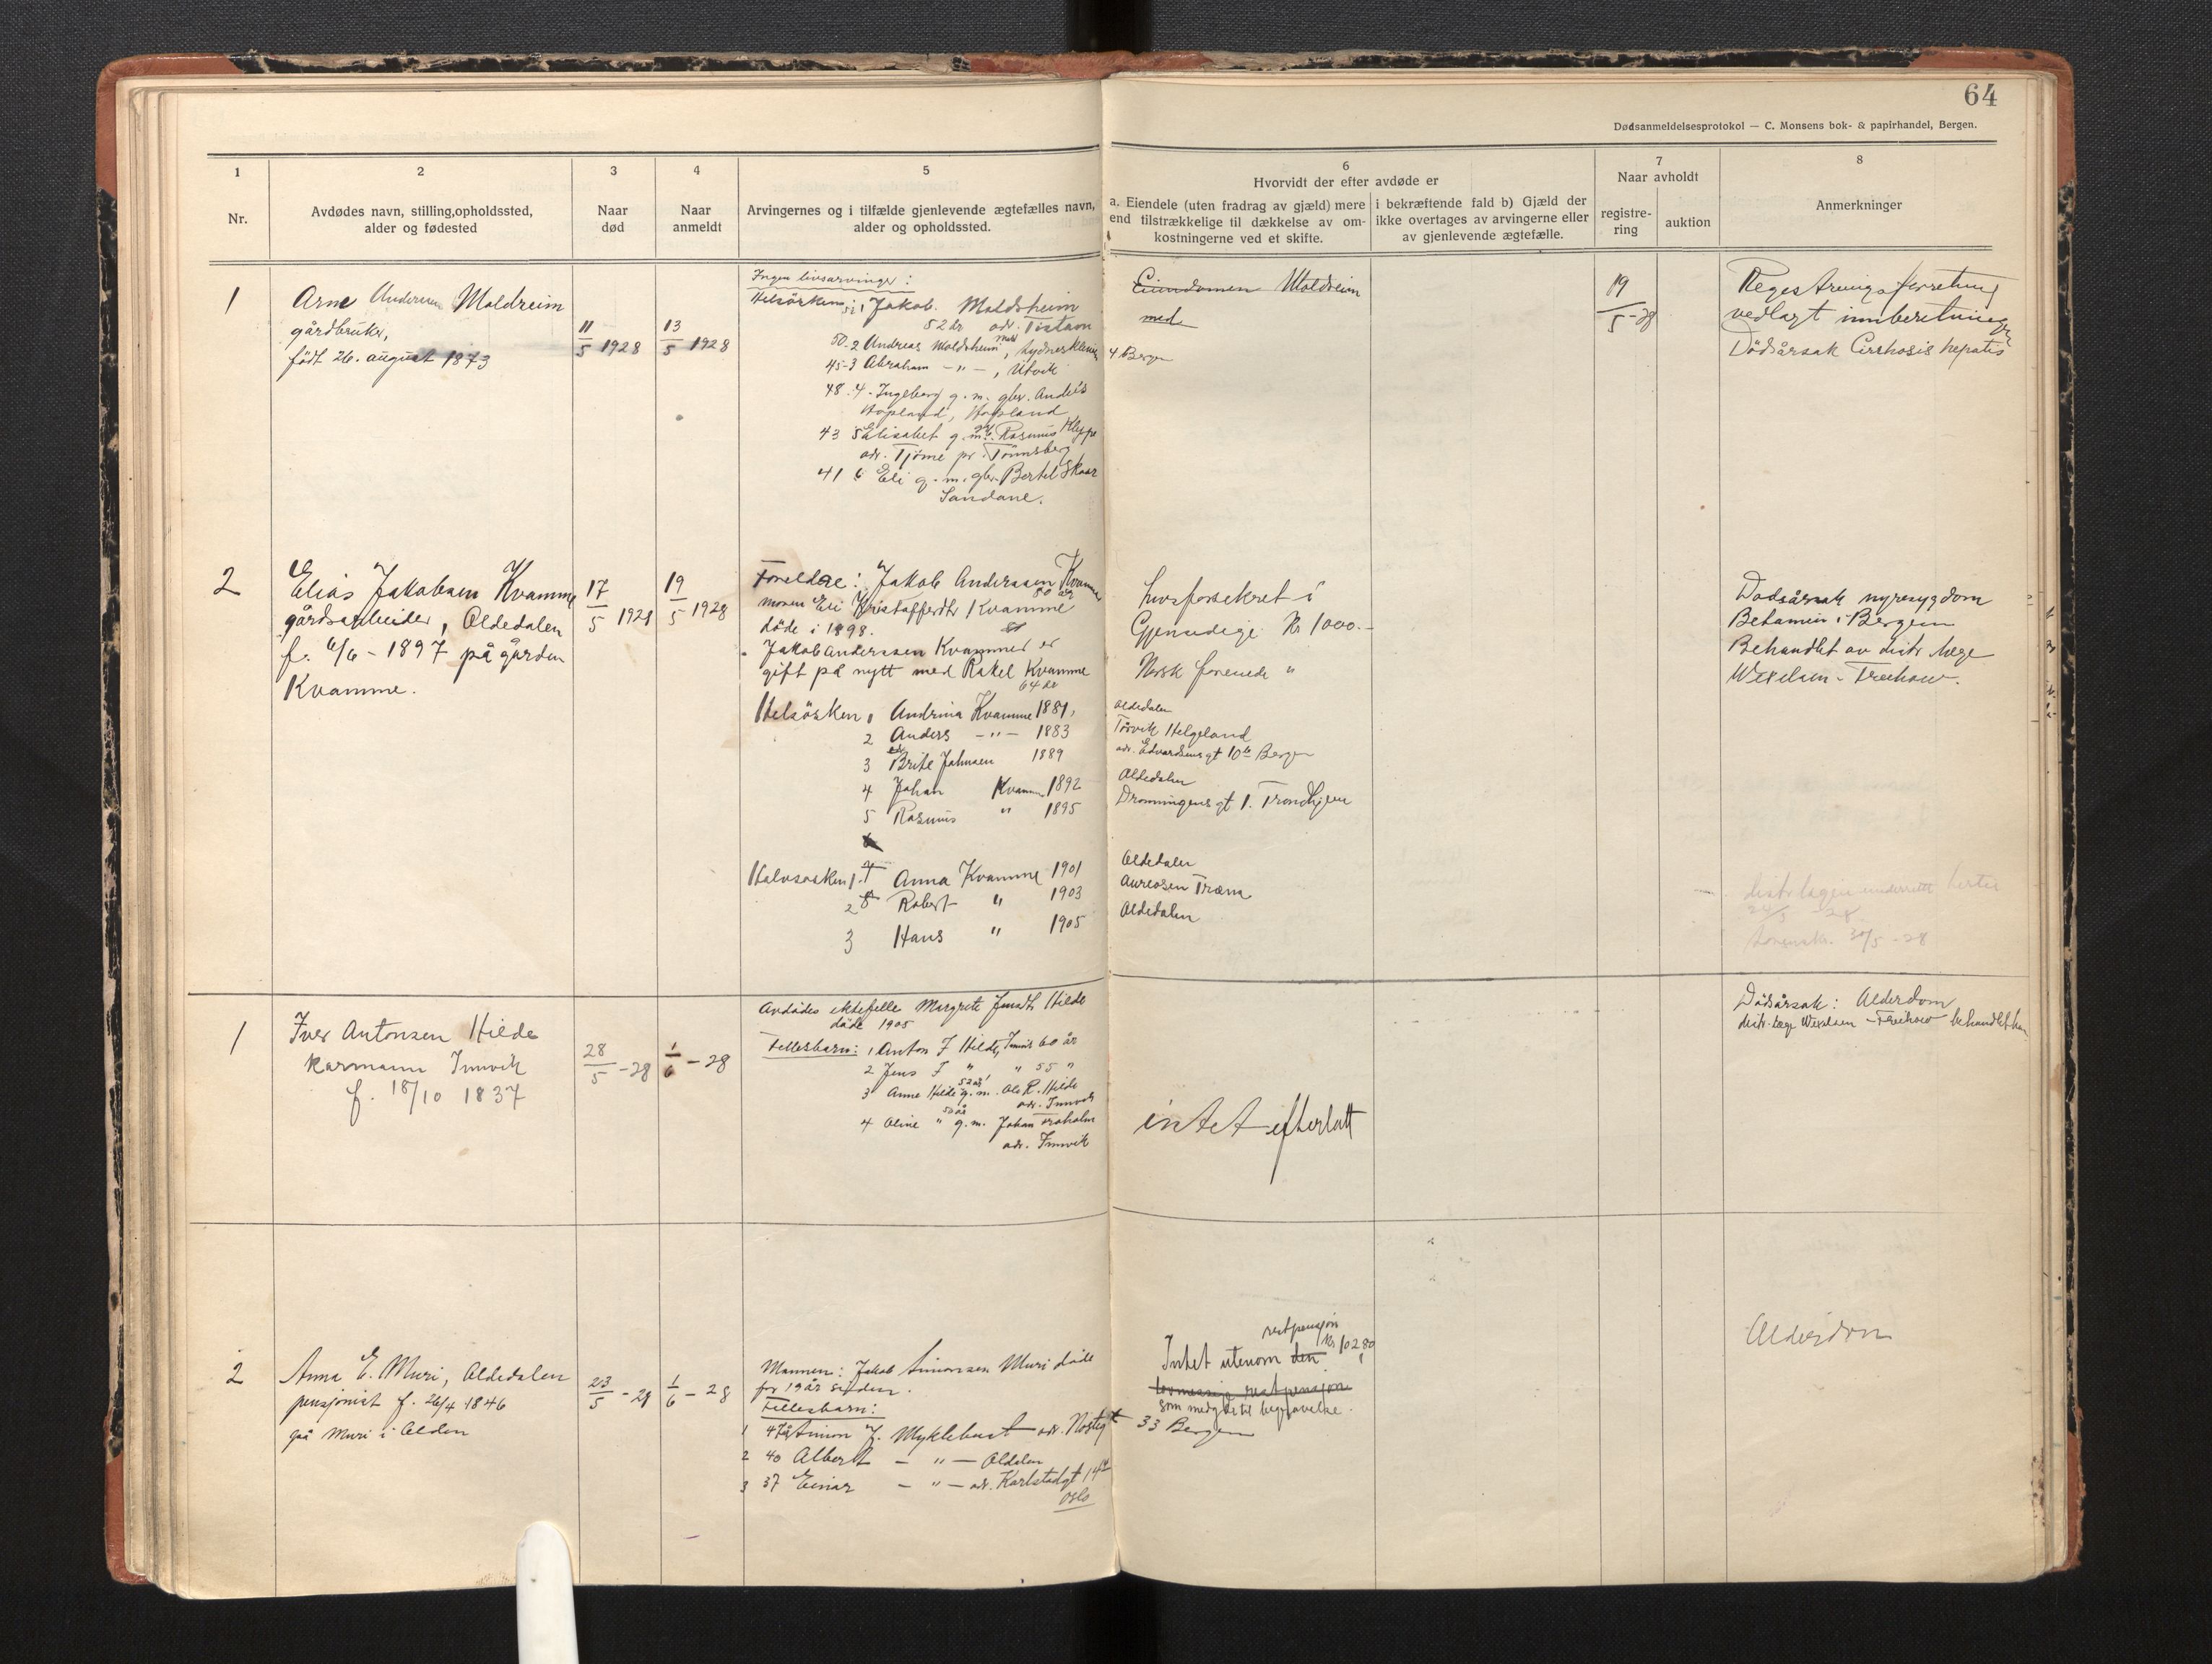 64
Dødsanmeldelsesprotokol — C. Monsens bok- & papirhandel, Bergen.
1
Nr.
2
Avdødes navn, stilling, opholdssted,
alder og fødested
3
Naar
død
4
Naar
anmeldt
5
Arvingernes og i tilfælde gjenlevende ægtefælles navn,
alder og opholdssted.
6
Hvorvidt der efter avdøde er
a. Eiendele (uten fradrag av gjæld) mere
end tilstrækkelige til dækkelse av om-
kostningerne ved et skifte.
i bekræftende fald b) Gjæld der
ikke overtages av arvingerne eller
av gjenlevende ægtefælle.
7
Naar avholdt
registre-
ring
auktion
8
Anmerkninger
1
Arne Andersen Moldreim
gårdbruker,
født 26. august 1873
11/5 1928
13/5 1928
Ingen livsarvinger:
Helsösken: 1 Jakob Moldsheim
52 år adr.
50-2 Andreas Moldsheim,
4 Bergen
45-3 Abraham —"—, Utvik
48-4. Ingeborg g.m. gbr. Anders
Hopland, Hopland
43 5 Elisabet g.m. Rasmus Kleppe
adr. Tjöme pr. Tönnsberg
41 6 Eli g.m. gbr. Bertel Skaar
Sandane.
Eiendomen Moldreim
med
19/5-28
Registreringsforretning
vedlagt innberetning
Dödsårsak Cirrhosis hepatis
2
Elias Jakobsen Kvamme
gårdsarbeider, Oldedalen
f. 6/6 - 1897 på gården
Kvamme.
17/5 1928
19/5 1928
Foreldre: Jakob Anderssen Kvamme
80 år
moren Eli Kristoffersdtr Kvamme
döde i 1898.
Jakob Anderssen Kvamme er
gift på nytt med Rakel Kvamme
64 år
Livsforsikret i
Gjensidige Kr 1000.-
Norsk forenede "
Helsösken 1 Andrina Kvamme 1881, Oldedalen
2 Anders —"— 1883 Helgeland
3 Brite Johnsen 1889 adr. Edvardsens gt 10 Bergen
4 Johan Kvamme 1892 Oldedalen
5 Rasmus " 1895 Dronningens gt 1. Trondhjem
Halvsösken 1. Anna Kvamme 1901 Oldedalen
2 Robert " 1903 Træna
3 Hans " 1905 Oldedalen
Dödsårsak nyresygdom
i Bergen
Behandlet av distr læge
Wexelsen-Treehow.
30/5 - 28
1
Iver Antonsen Hilde
kårmann Innvik
f. 18/10 1837
28/5 - 28
1/6 - 28
Avdödes ektefelle Margrete Hilde
döde 1905
Fellesbarn: 1 Anton I Hilde, Innvik 60 år
2 Jens I " " 55 "
3 Anne Hilde 52 år g.m. Ole R. Hilde
adr. Innvik
4 Oline " 50 år g.m. Johan
adr. Innvik
intet efterlatt
Dödsårsak: Alderdom
distr. læge Wexelsen - Treehow behandlet
2
Anna E. Muri, Oldedalen
pensjonist f. 26/4 1846
på Muri i Olden
23/5 - 28
1/6 - 28
Mannen: Jakob Simonsen Muri döde
for 19 år siden.
Fellesbarn:
1 47 år Simon J. Myklebust adr. Nostegt 33 Bergen
2 40 Albert —"— Olden
3 37 Einar —"— adr. Karlstadgt 14
Oslo
restpensjon
Intet utenom den Kr 102.80
restpensjon
som medgår til begravelse.
Alderdom